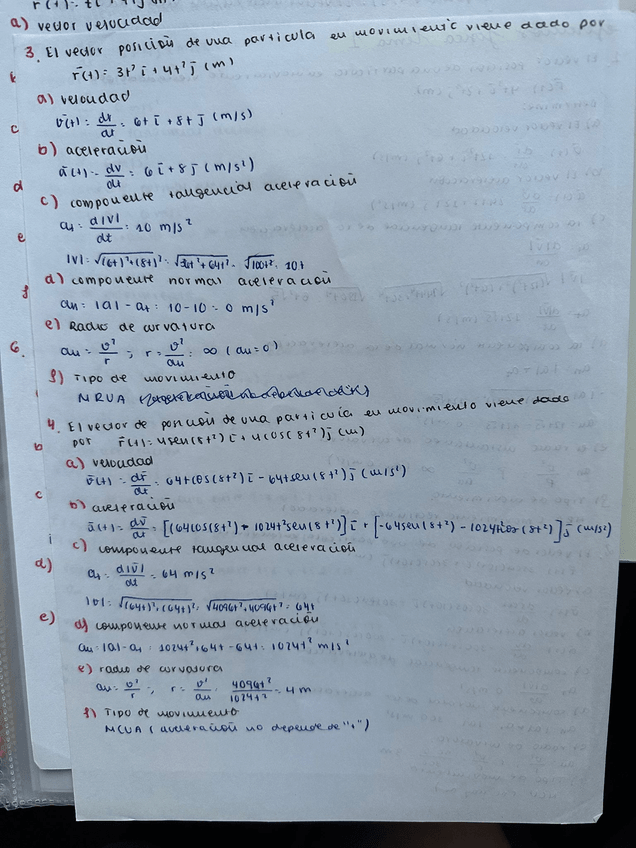 a) vector velocidad
3. El vector posición de una partícula en movimiento viene dado por
r̄(t) = 3t² ī + 4t² j̄ (m)
a) velocidad
v̄(t) = dr/dt = 6t ī + 8t j̄ (m/s)
b) aceleración
ā(t) = dv/dt = 6 ī + 8 j̄ (m/s²)
c) componente tangencial aceleración
at = d|v̄|/dt = 10 m/s²
|v| = √(6t)²+(8t)² = √36t²+64t² = √100t² = 10t
d) componente normal aceleración
an = |a| - at = 10-10 = 0 m/s²
e) Radio de curvatura
an = v²/r ; r = v²/an = ∞ (an=0)
f) Tipo de movimiento
MRUA
4. El vector de posición de una partícula en movimiento viene dado
por r̄(t) = 4sen(8t²) ī + 4cos(8t²) j̄ (m)
a) velocidad
v̄(t) = dr̄/dt = 64t cos(8t²) ī - 64t sen(8t²) j̄ (m/s²)
b) aceleración
ā(t) = dv̄/dt = [(64cos(8t²) - 1024t² sen(8t²)] ī + [-64sen(8t²) - 1024t² cos(8t²)] j̄ (m/s²)
c) componente tangencial aceleración
at = d|v̄|/dt = 64 m/s²
|v| = √(64t)²+(64t)² = √4096t²+4096t² = 64t
d) componente normal aceleración
an = |a| - at = 1024t²+64t - 64t = 1024t² m/s²
e) radio de curvatura
an = v²/r ; r = v²/an = 4096t²/1024t² = 4 m
f) Tipo de movimiento
MCUA (aceleración no depende de "t")